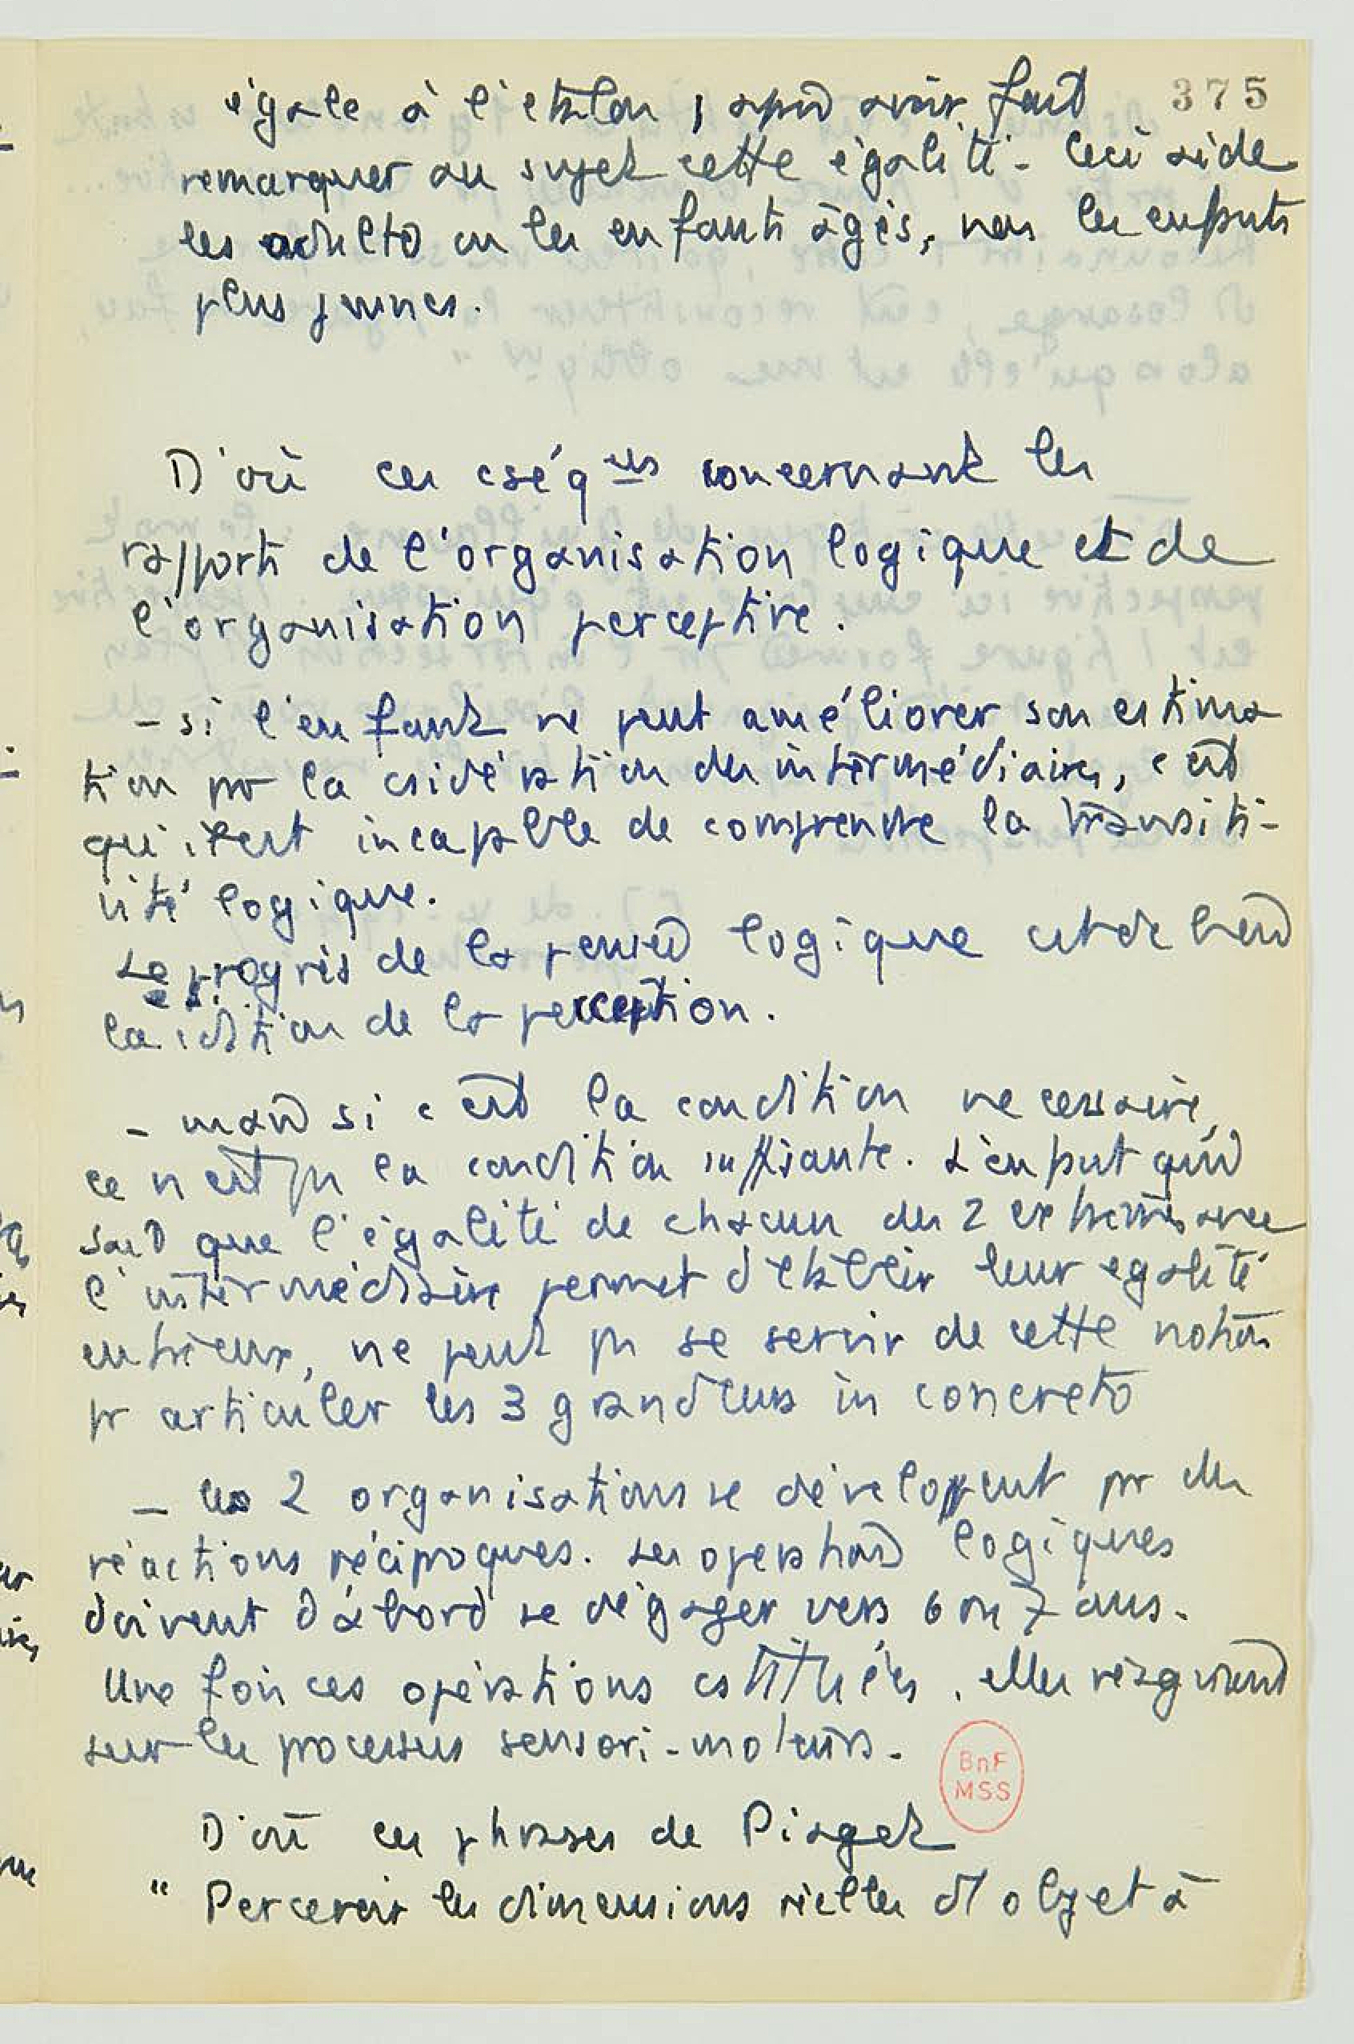 375
égale à l'étalon, après avoir fait
remarquer au sujet cette égalité. Ceci aide
les adultes ou les enfants âgés, non les enfants
plus jeunes.
D'où ces cséq^ces concernant les
rapports de l'organisation logique et de
l'organisation perceptive.
- si l'enfant ne peut améliorer son estima
tion par la csidération des intermédiaires, c'est
qu'il est incapable de comprendre la transiti-
vité logique.
Le progrès de la pensée logique est de
la cdition de la perception.
- mais si c'est la condition necessaire,
ce n'est pas la condition suffisante. L'enfant qui
sait que l'égalité de chacun des 2 extrêmes avec
l'intermédiaire permet d'établir leur egalité
entre eux, ne peut pas se servir de cette notion
pr articuler les 3 grandeurs in concreto
- les 2 organisations se développent par des
réactions réciproques. Les operations logiques
doivent d'abord se dégager vers 6 ou 7 ans.
Une fois ces opérations cstituées, elles réagissent
sur les processus sensori-moteurs.
BnF
MSS
D'où ces phrases de Piaget
" Percevoir les dimensions réelles d'1 objet à